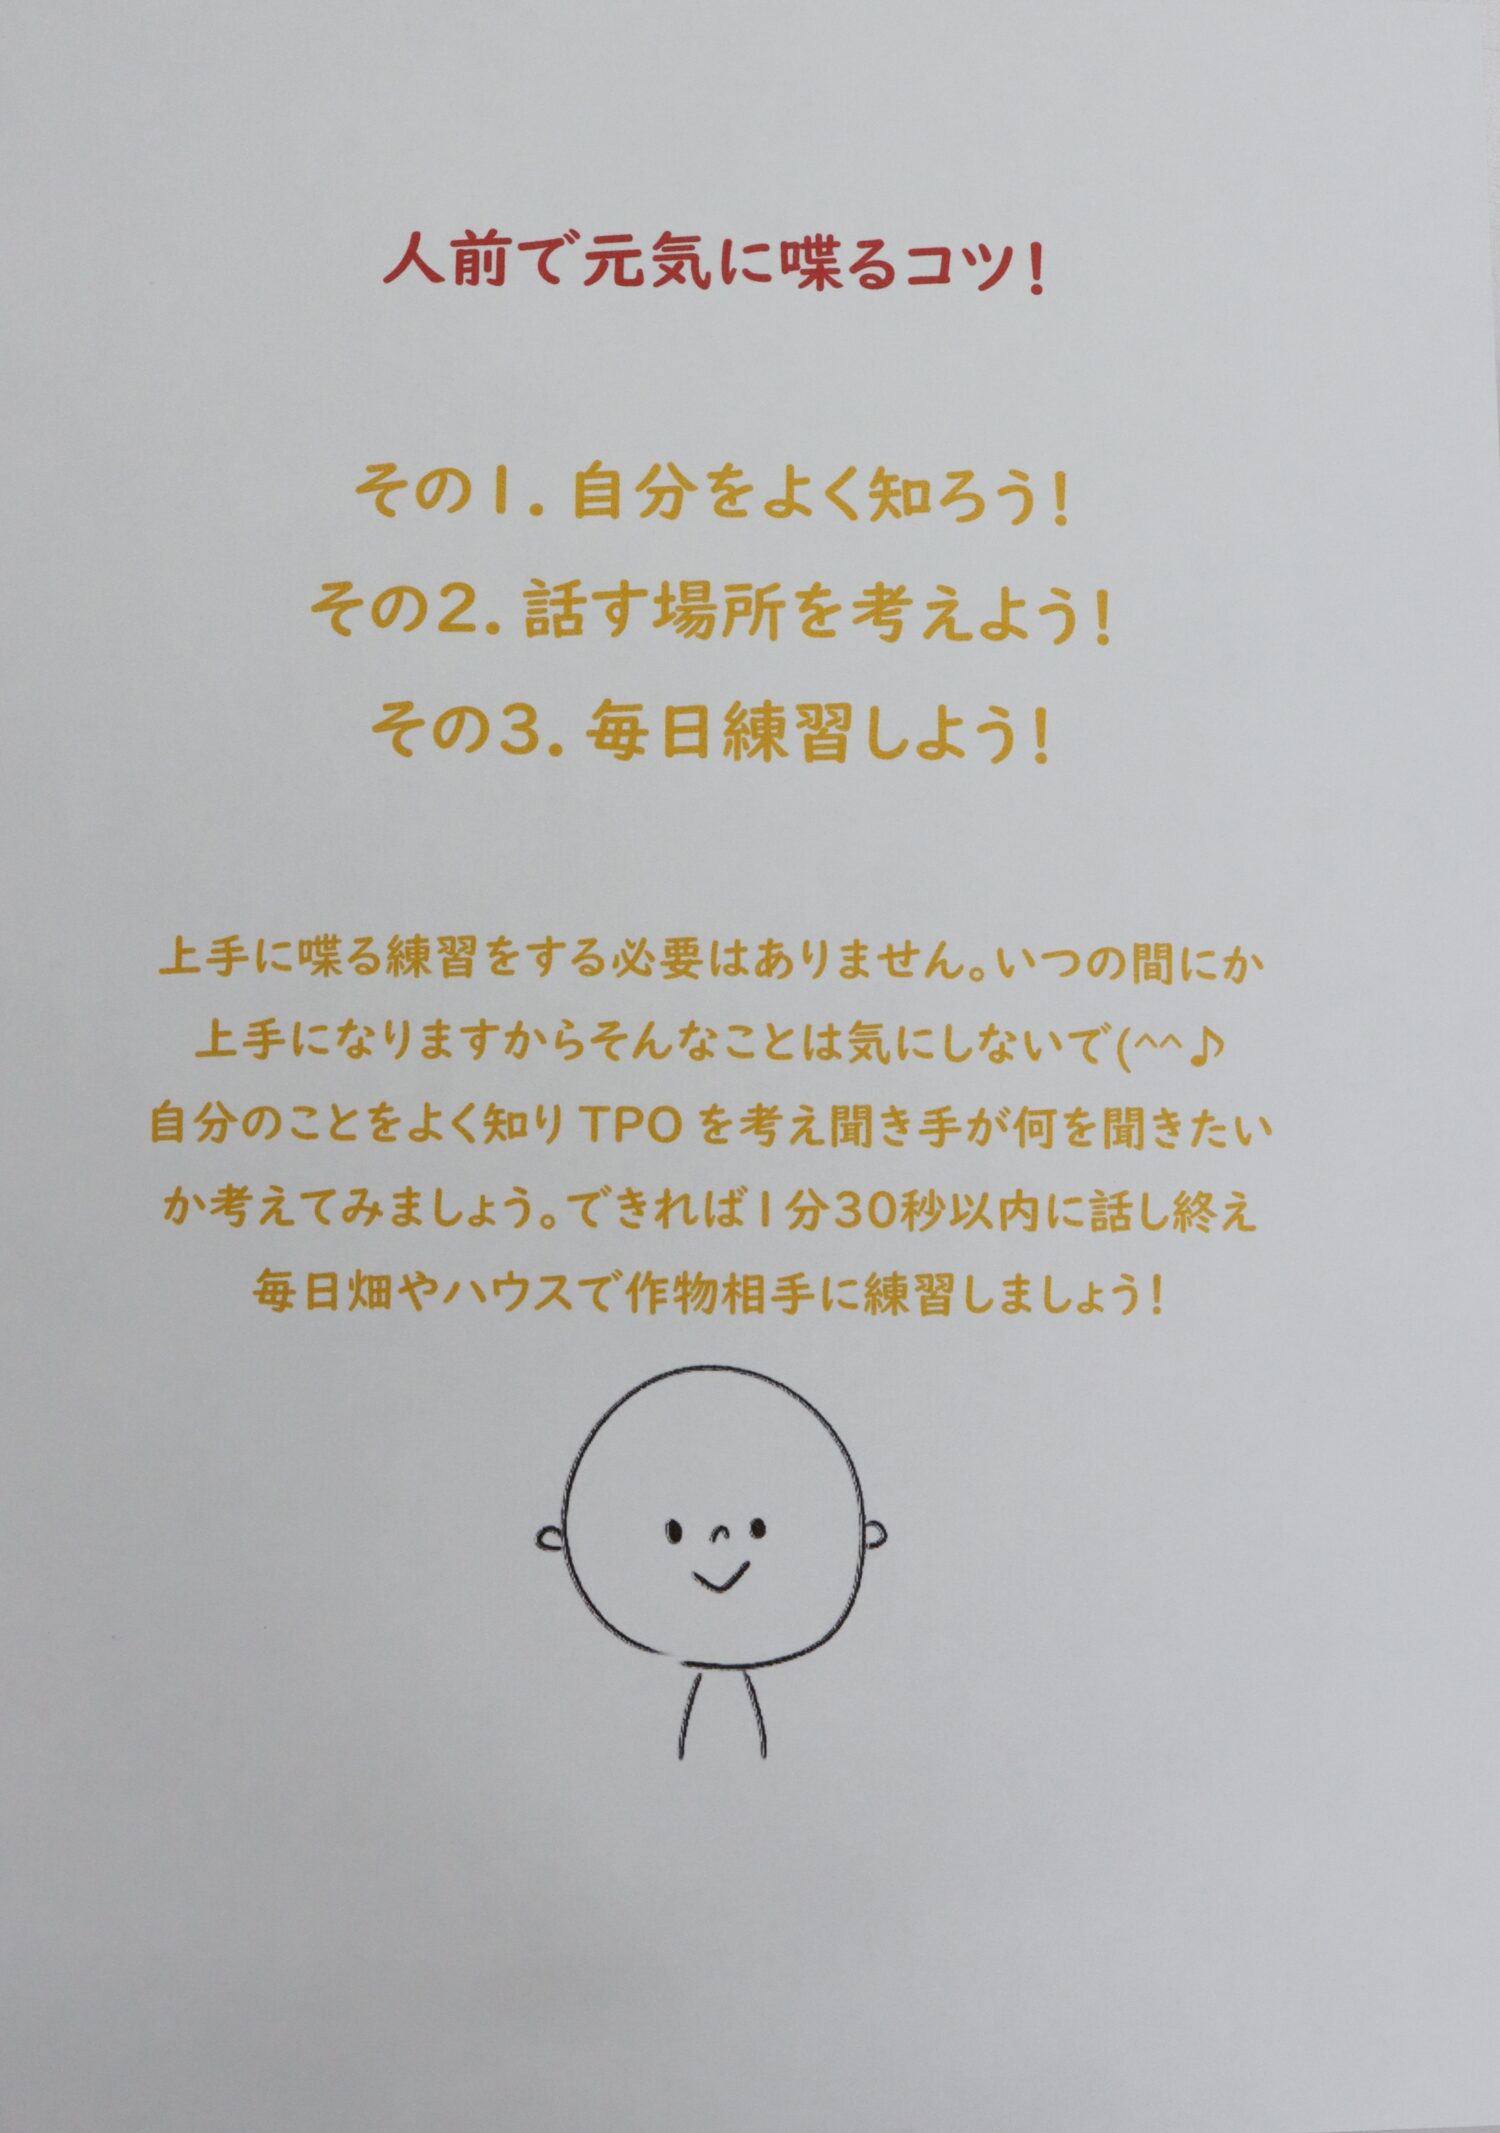 人前で元気に喋るコツ！
その１．自分をよく知ろう！
その２．話す場所を考えよう！
その３．毎日練習しよう！
上手に喋る練習をする必要はありません。いつの間にか
上手になりますからそんなことは気にしないで(^^♪
自分のことをよく知りTPOを考え聞き手が何を聞きたい
か考えてみましょう。できれば１分３０秒以内に話し終え
毎日畑やハウスで作物相手に練習しましょう！